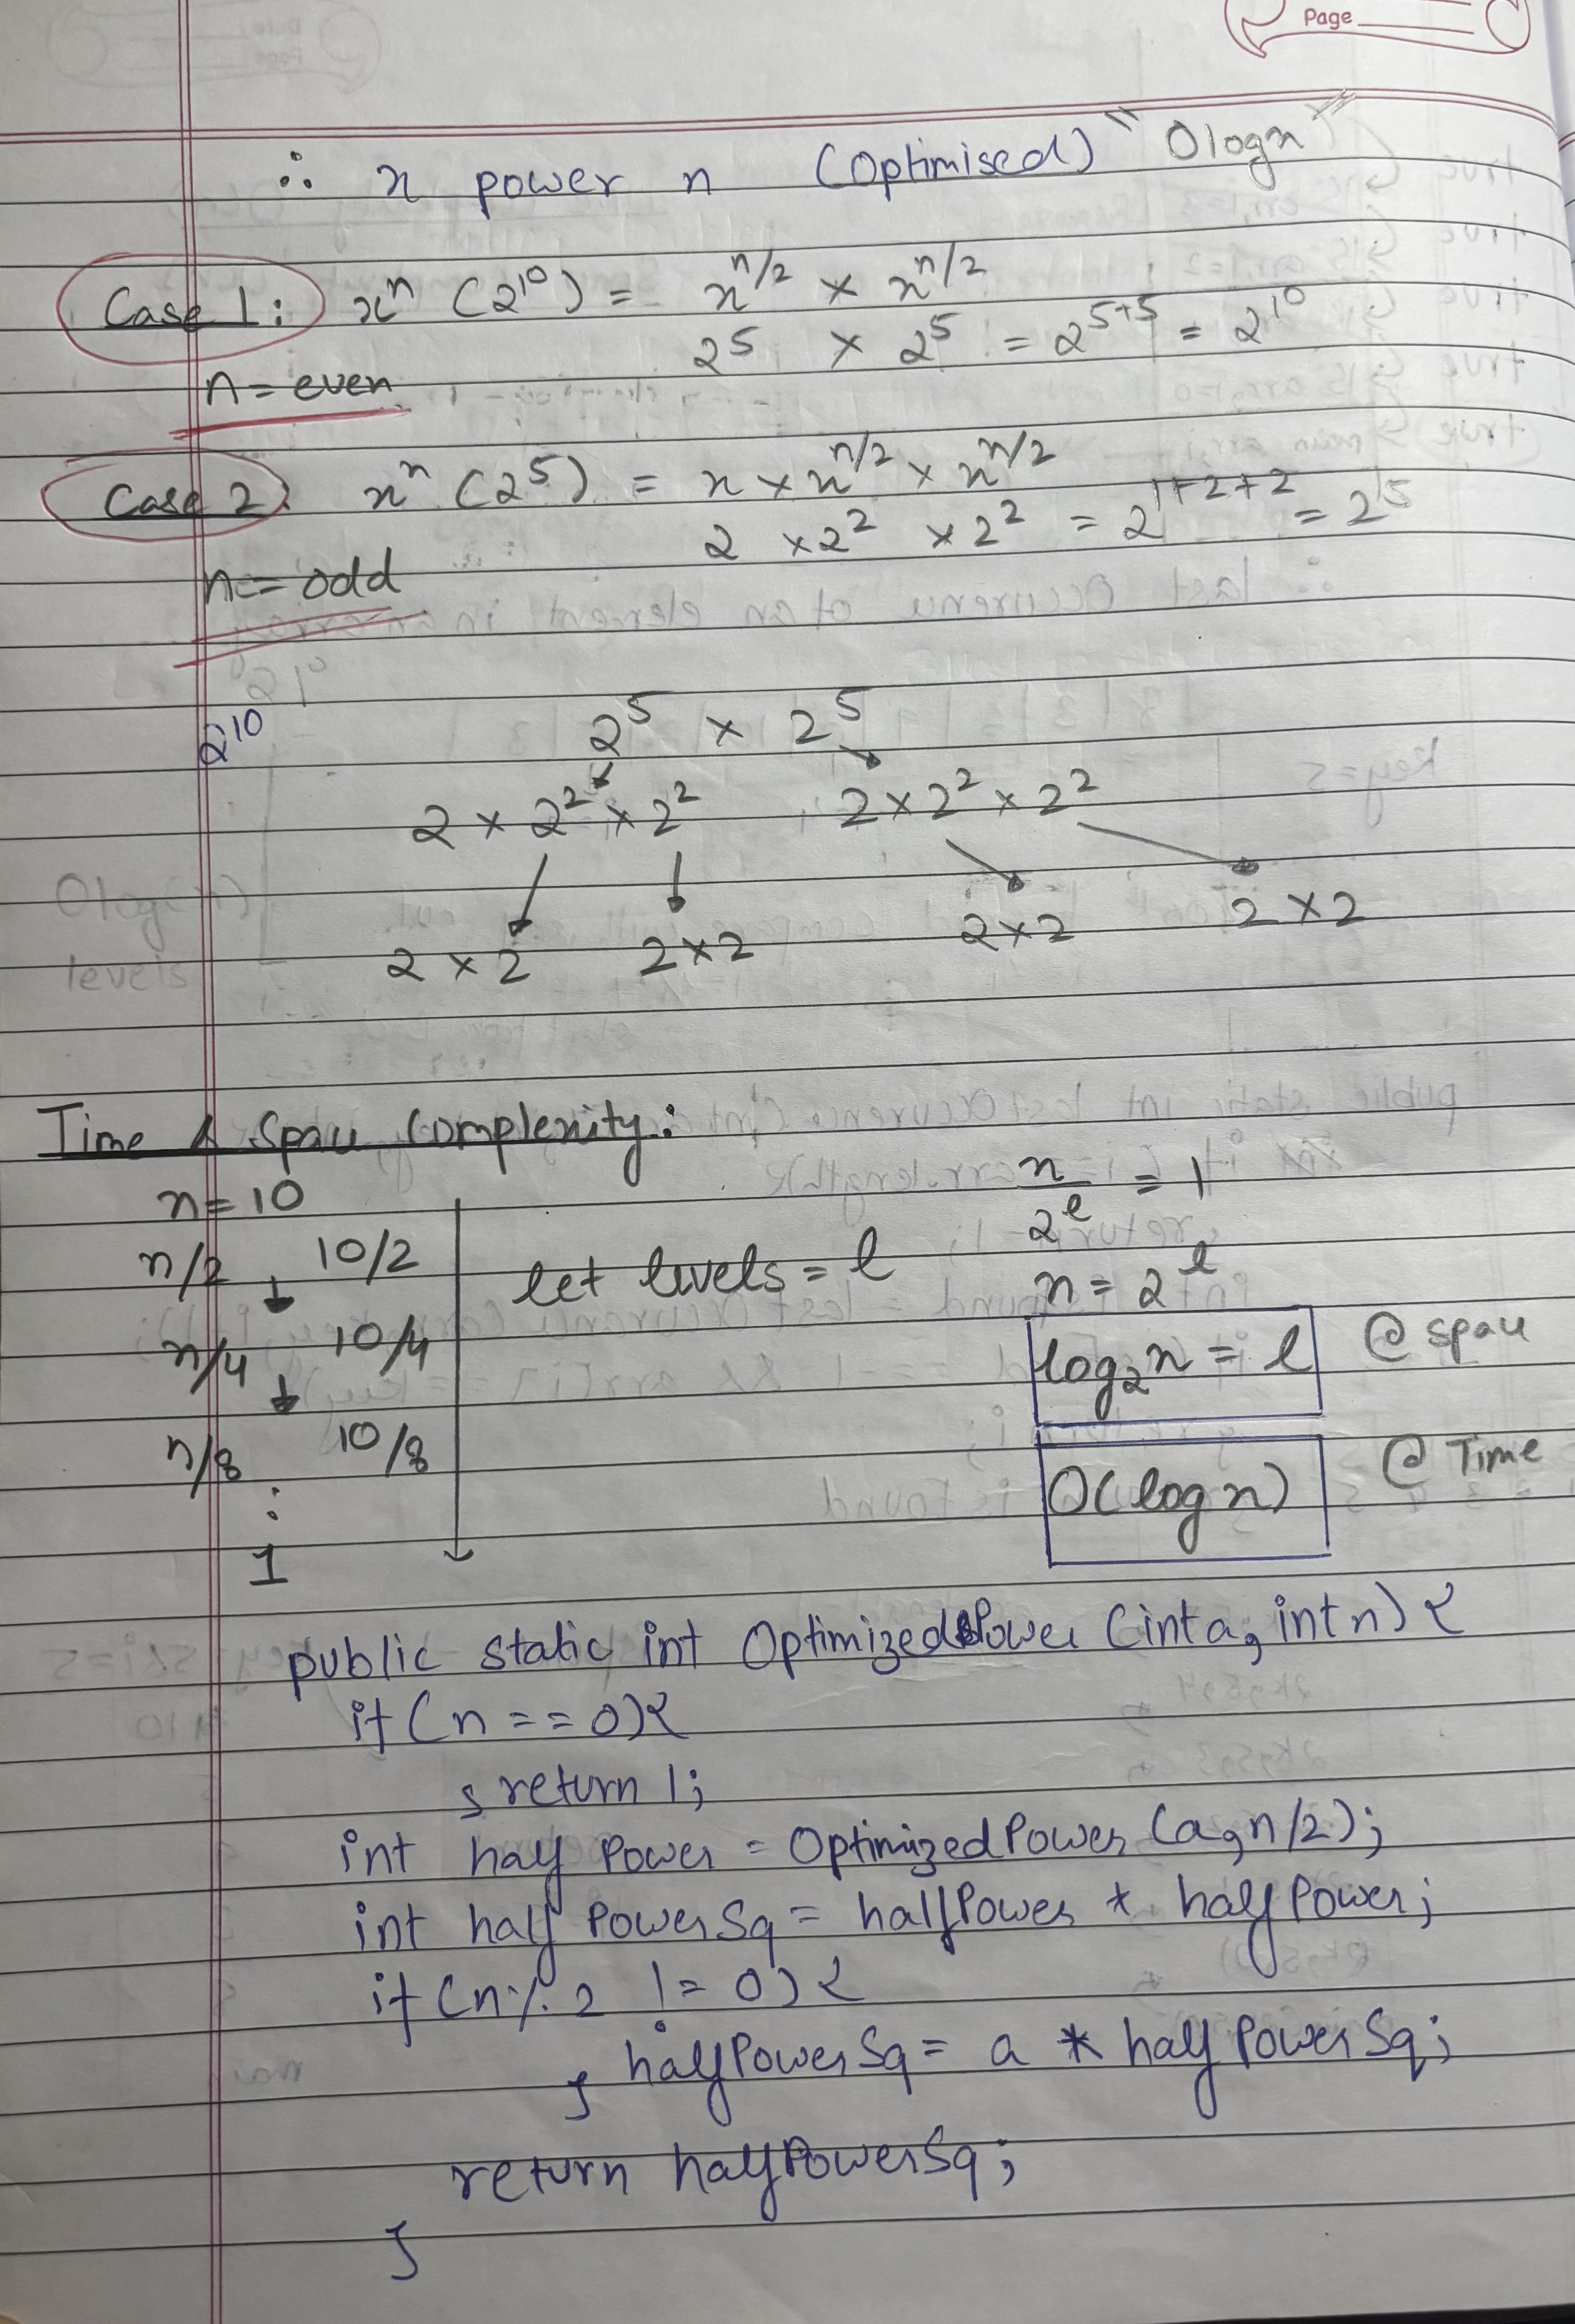 Page
∴ x power n (Optimised) "Ologn"
Case 1: xⁿ (2¹⁰) = x^n/2 × x^n/2
2⁵ × 2⁵ = 2⁵⁺⁵ = 2¹⁰
n = even
Case 2: xⁿ (2⁵) = x × x^n/2 × x^n/2
2 × 2² × 2² = 2¹⁺²⁺² = 2⁵
n = odd
2¹⁰ 2⁵ × 2⁵
2 × 2² × 2² 2 × 2² × 2²
2 × 2 2 × 2 2 × 2 2 × 2
Ologn(n)
levels
Time & Space Complexity:
n = 10 n/2^l = 1
n/2 10/2 let levels = l n = 2^l
n/4 10/4 log₂n = l @ space
n/8 10/8 O(logn) @ Time
1
public static int OptimizedPower (int a, int n) {
if (n == 0) {
} return 1;
int halfPower = OptimizedPower (a, n/2);
int halfPowerSq = halfPower * halfPower;
if (n % 2 != 0) {
} halfPowerSq = a * halfPowerSq;
return halfPowerSq;
}